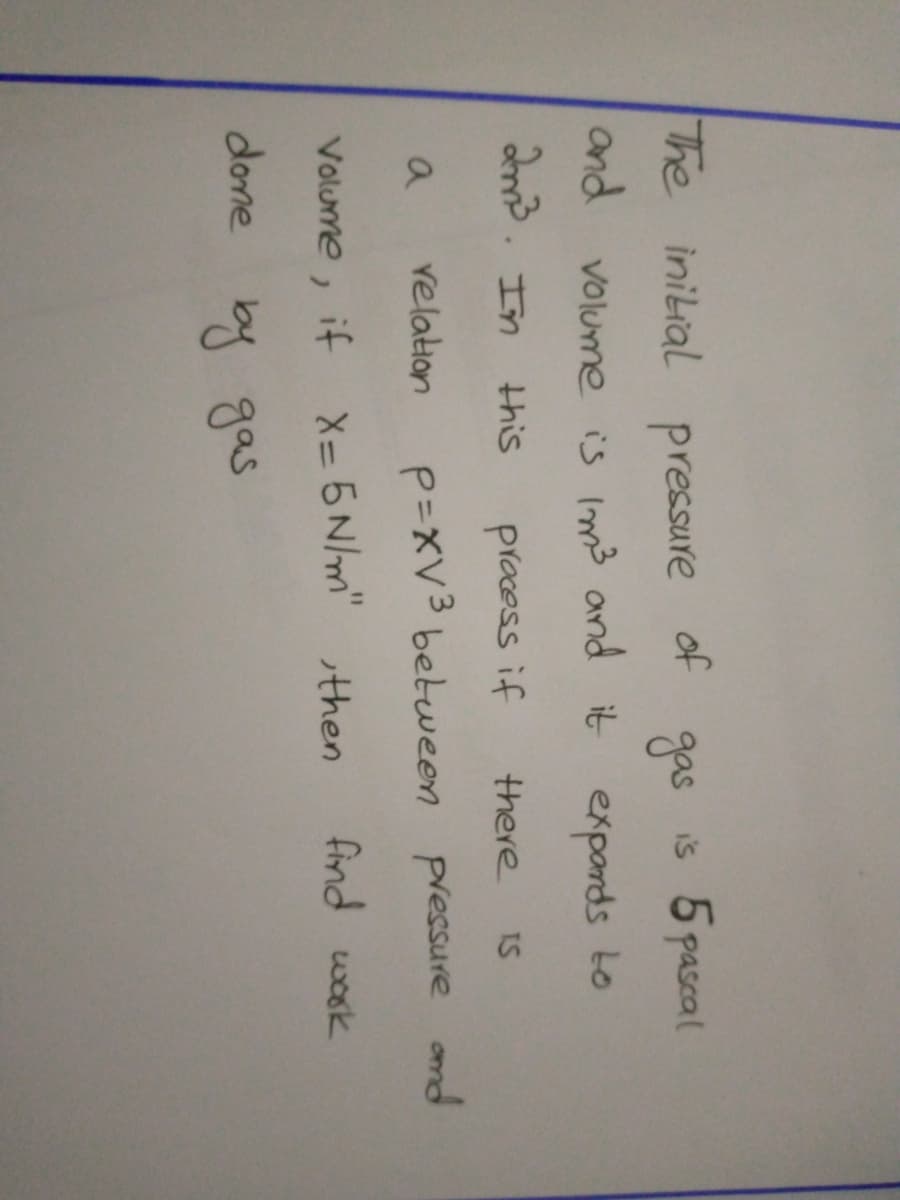 The initial pressure of gas is 5 pascal
and volume is 1m³ and it expands to
2m³. In this process if there is
a relation P=XV³ between pressure and
volume, if X=5N/m", then find work
done by gas